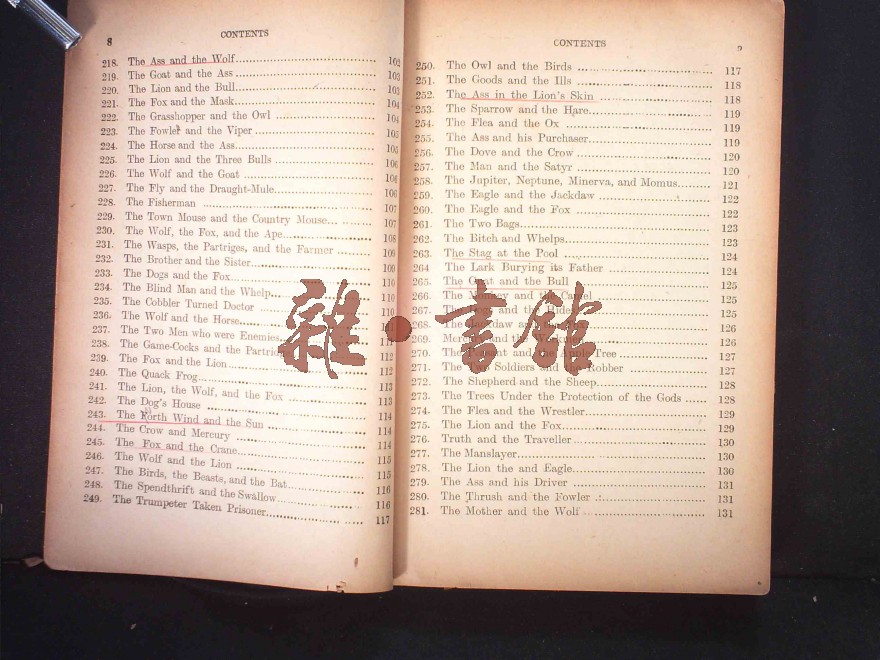 8
CONTENTS
218. The Ass and the Wolf 102
219. The Goat and the Ass 103
220. The Lion and the Bull 103
221. The Fox and the Mask 104
222. The Grasshopper and the Owl 104
223. The Fowler and the Viper 105
224. The Horse and the Ass 105
225. The Lion and the Three Bulls 106
226. The Wolf and the Goat 106
227. The Fly and the Draught-Mule 106
228. The Fisherman 107
229. The Town Mouse and the Country Mouse 107
230. The Wolf, the Fox, and the Ape 108
231. The Wasps, the Partriges, and the Farmer 109
232. The Brother and the Sister 109
233. The Dogs and the Fox 110
234. The Blind Man and the Whelp 110
235. The Cobbler Turned Doctor 110
236. The Wolf and the Horse
237. The Two Men who were Enemies
238. The Game-Cocks and the Partridge
239. The Fox and the Lion 112
240. The Quack Frog 112
241. The Lion, the Wolf, and the Fox 113
242. The Dog's House 113
243. The North Wind and the Sun 114
244. The Crow and Mercury 114
245. The Fox and the Crane 114
246. The Wolf and the Lion 115
247. The Birds, the Beasts, and the Bat 115
248. The Spendthrift and the Swallow 116
249. The Trumpeter Taken Prisoner 116
117
CONTENTS
9
250. The Owl and the Birds 117
251. The Goods and the Ills 118
252. The Ass in the Lion's Skin 118
253. The Sparrow and the Hare 119
254. The Flea and the Ox 119
255. The Ass and his Purchaser 119
256. The Dove and the Crow 120
257. The Man and the Satyr 120
258. The Jupiter, Neptune, Minerva, and Momus 121
259. The Eagle and the Jackdaw 122
260. The Eagle and the Fox 122
261. The Two Bags 123
262. The Bitch and Whelps 123
263. The Stag at the Pool 124
264 The Lark Burying its Father 124
265. The Gnat and the Bull 125
266. The Monkey and the Camel 125
267. The Dogs and the Hides 125
268. The Jackdaw and the Fox 126
269. Mercury and the Workmen 126
270. The Peasant and the Apple-Tree 127
271. The Two Soldiers and the Robber 127
272. The Shepherd and the Sheep 128
273. The Trees Under the Protection of the Gods 128
274. The Flea and the Wrestler 129
275. The Lion and the Fox 129
276. Truth and the Traveller 130
277. The Manslayer 130
278. The Lion the and Eagle 130
279. The Ass and his Driver 131
280. The Thrush and the Fowler 131
281. The Mother and the Wolf 131
雜·書館